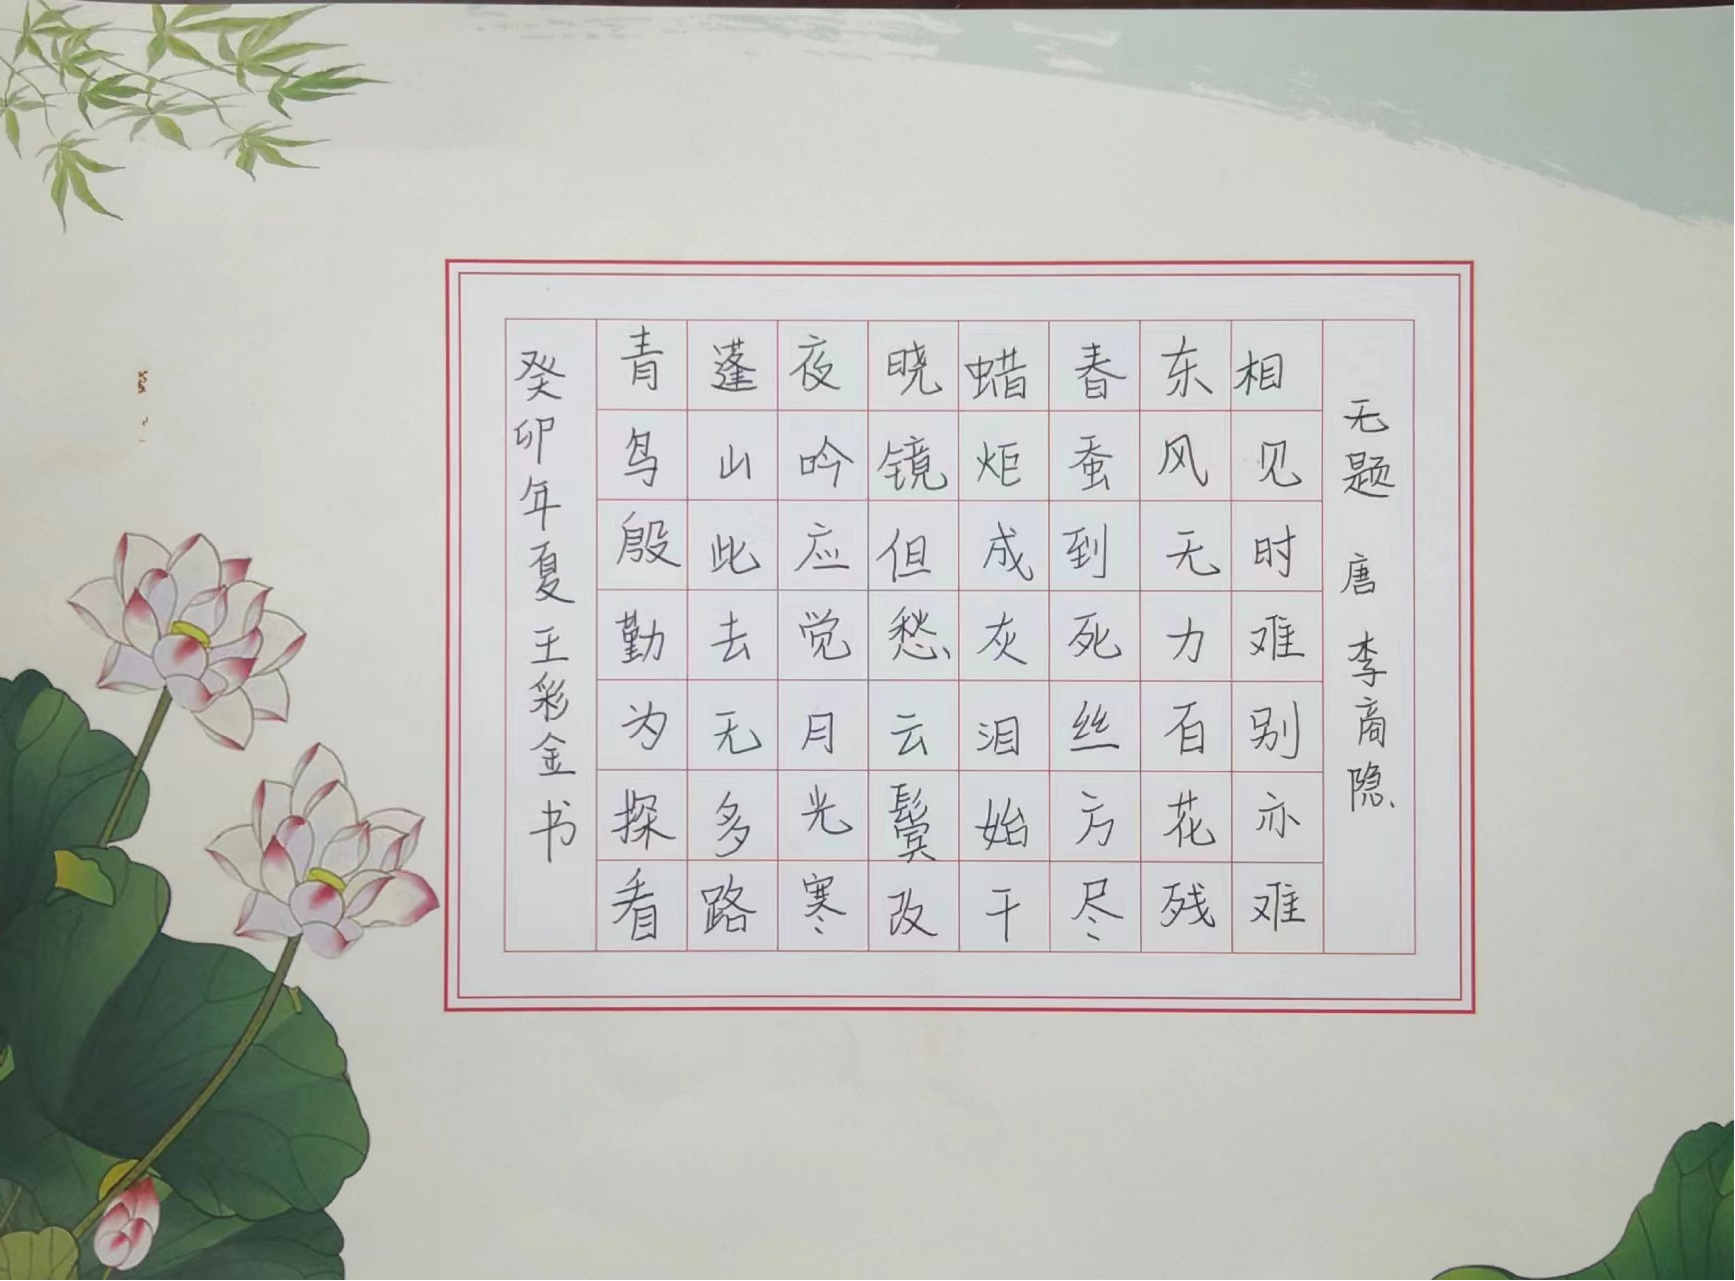 无题 唐 李商隐
相见时难别亦难
东风无力百花残
春蚕到死丝方尽
蜡炬成灰泪始干
晓镜但愁云鬓改
夜吟应觉月光寒
蓬山此去无多路
青鸟殷勤为探看
癸卯年夏 王彩金书